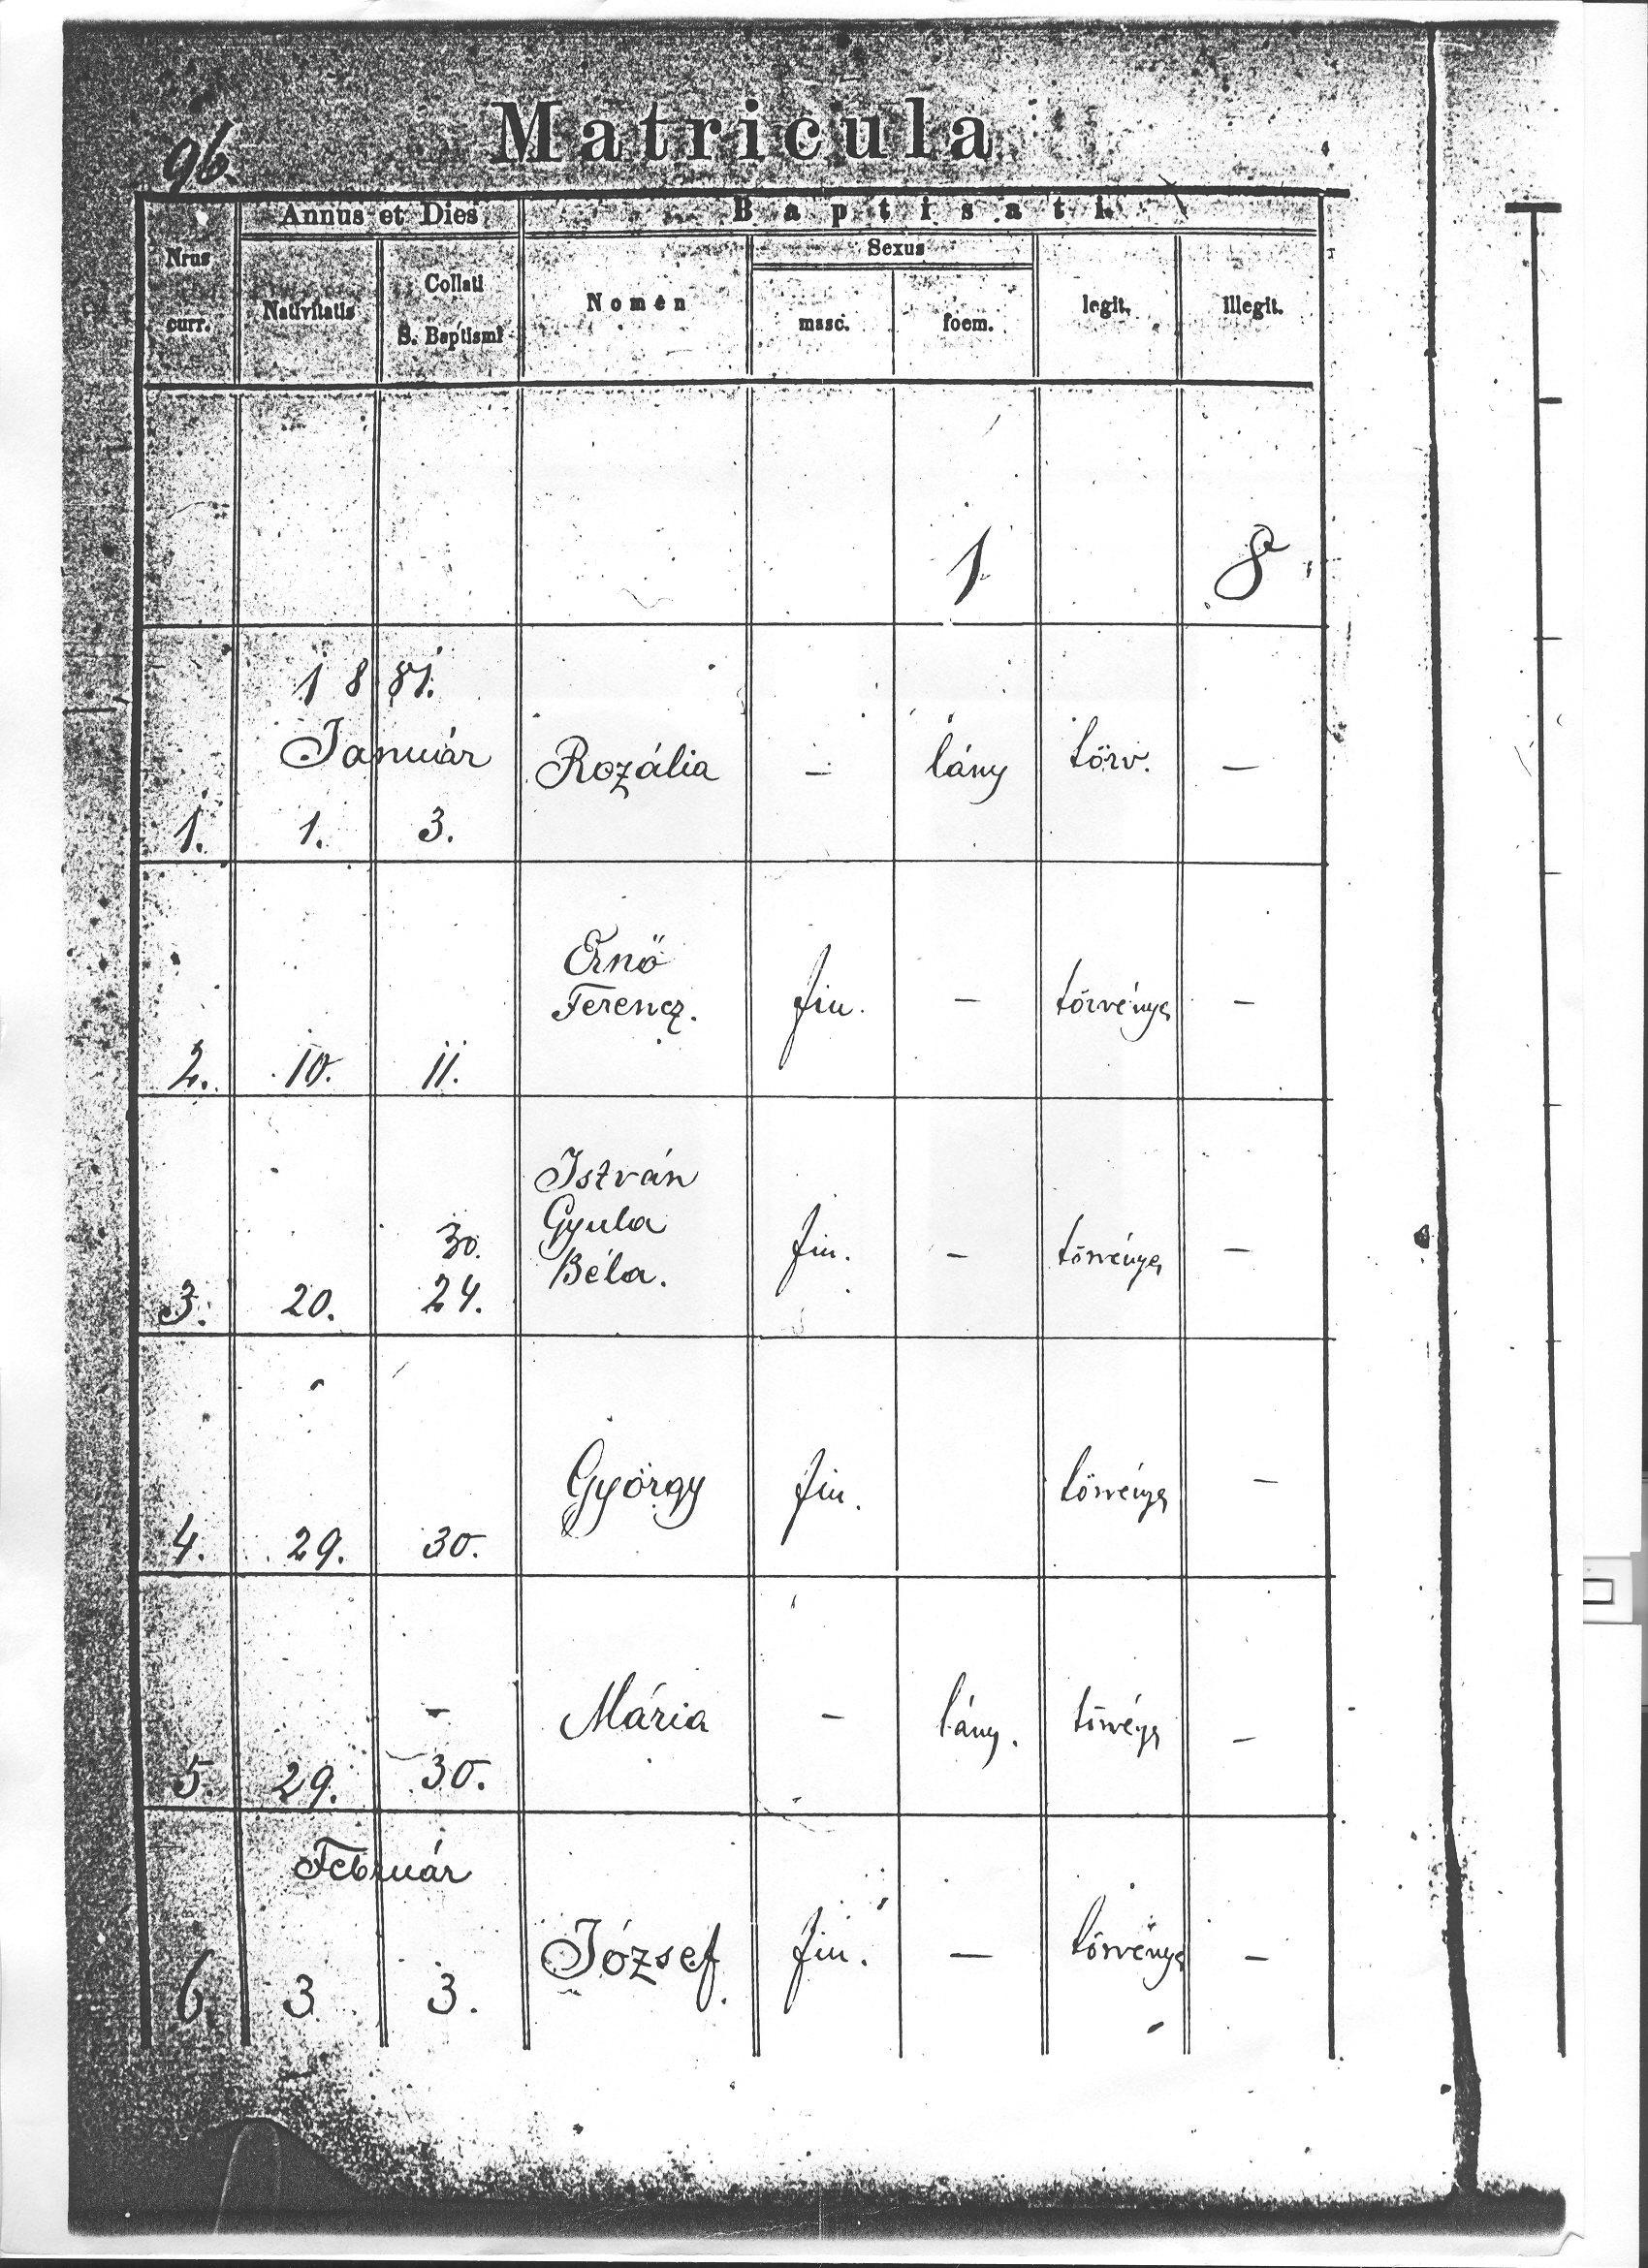 96
Matricula
Nrus curr.
Annus et Dies
Baptisati
Nativitatis
Collati S. Baptismi
Nomen
Sexus
masc.
foem.
legit.
illegit.
1
8
1881.
Január
1. 1. 3. Rozália – lány törv. –
Ernő
Ferencz. fiu. – törvényes –
2. 10. 11.
István
Gyula
30. Béla. fiu. – törvényes –
3. 20. 24.
György fiu. törvényes –
4. 29. 30.
– Mária – lány. törvéys –
5. 29. 30.
Február
József fiu. – törvényes –
6. 3 3.